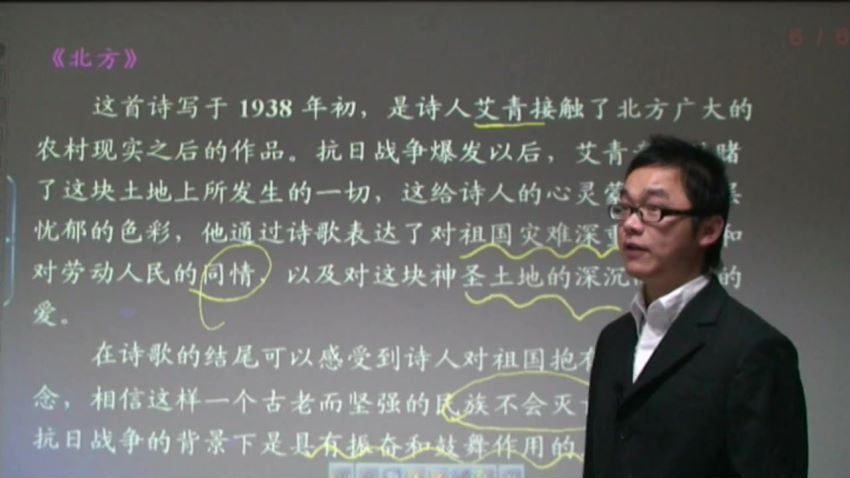 6 / 6
《北方》
这首诗写于 1938 年初，是诗人艾青接触了北方广大的
农村现实之后的作品。抗日战争爆发以后，艾青 睹
了这块土地上所发生的一切，这给诗人的心灵蒙
忧郁的色彩，他通过诗歌表达了对祖国灾难深重 和
对劳动人民的同情，以及对这块神圣土地的深沉 的
爱。
在诗歌的结尾可以感受到诗人对祖国抱有
念，相信这样一个古老而坚强的民族不会灭
抗日战争的背景下是具有振奋和鼓舞作用的